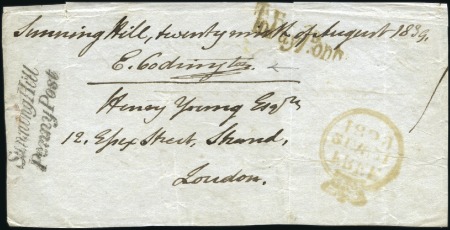 Sunning Hill, twenty ninth of August 1839.
E. Codrington
Henry Young Esqre
12, Essex Street, Strand,
London.
Sunning Hill
Penny Post